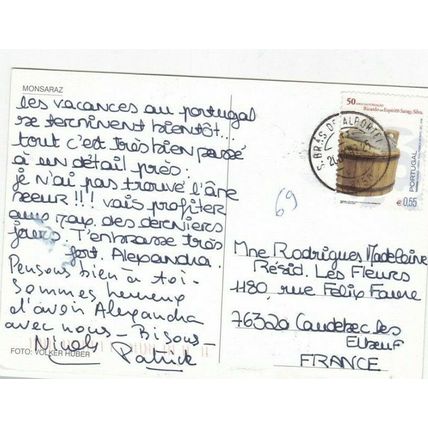 MONSARAZ
les vacances au portugal
se terminent bientôt...
tout c'est très bien passé
à un détail près:
je n'ai pas trouvé l'âme
soeur!!! vais profiter
aux max des derniers
jours T'embrasse très
fort. Alexandra.
Pensons bien à toi-
Sommes heureux
d'avoir Alexandra
avec nous - Bisous -
Patrick
FOTO: VOLKER HUBER
69
50
Ricardo do Espírito Santo Silva
S. BRÁS DE ALPORTEL
PORTUGAL
€ 0,55
Mne Rodrigues Madeleine
Résid. Les Fleurs
1180 rue Félix Faure
76320 Caudebec les
Elbeuf
FRANCE